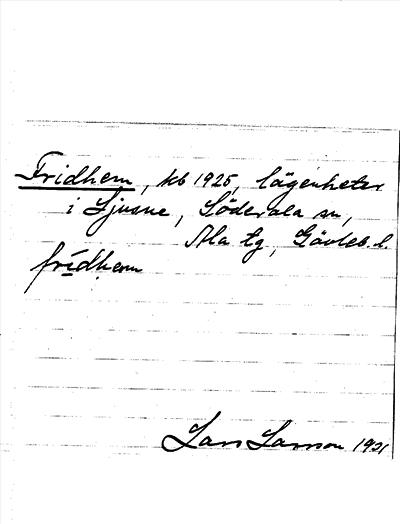 Fridhem, kb 1925, lägenheter
i Ljusne, Söderala sn,
Ala tg, Gävleb. l.
frídhem
Lars Larsson 1931